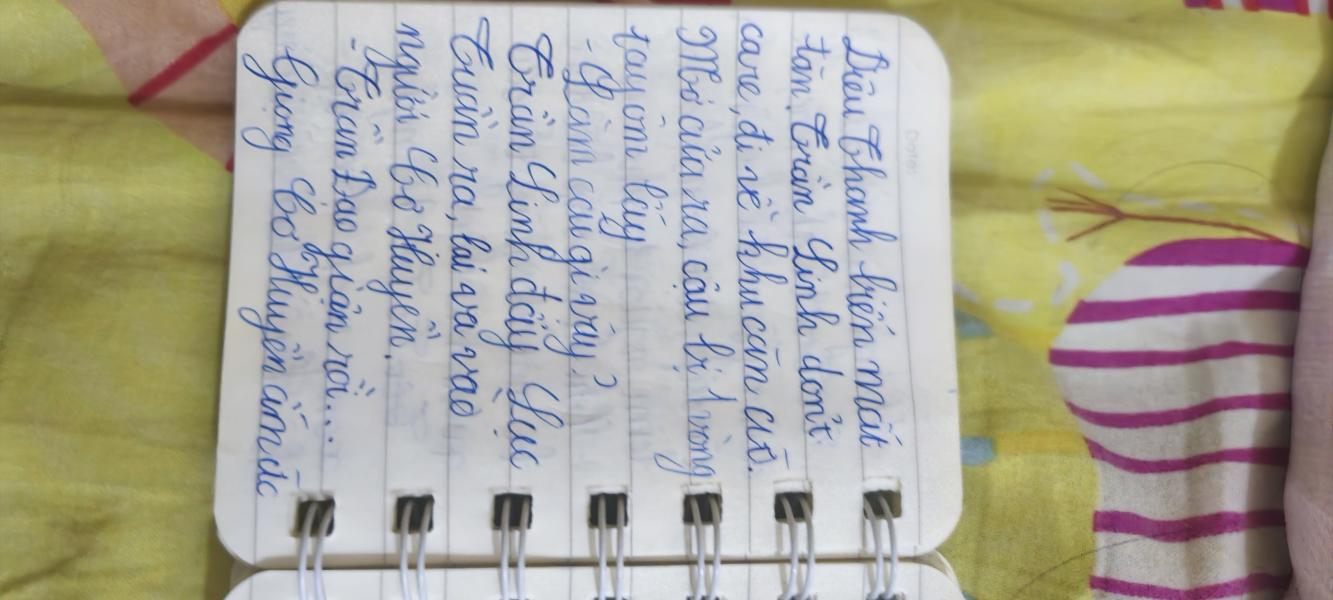 Diêu Thanh biến mất
tăm. Trần Linh don't
care, đi về khu căn cứ.
Mở cửa ra, cậu bị 1 vòng
tay ôm lấy
- Làm cái gì vậy?
Trần Linh đẩy Lục
Tuần ra, lại va vào
người Cơ Huyền.
- Trần Đạo giận rồi...
Giọng Cơ Huyền ấm ức